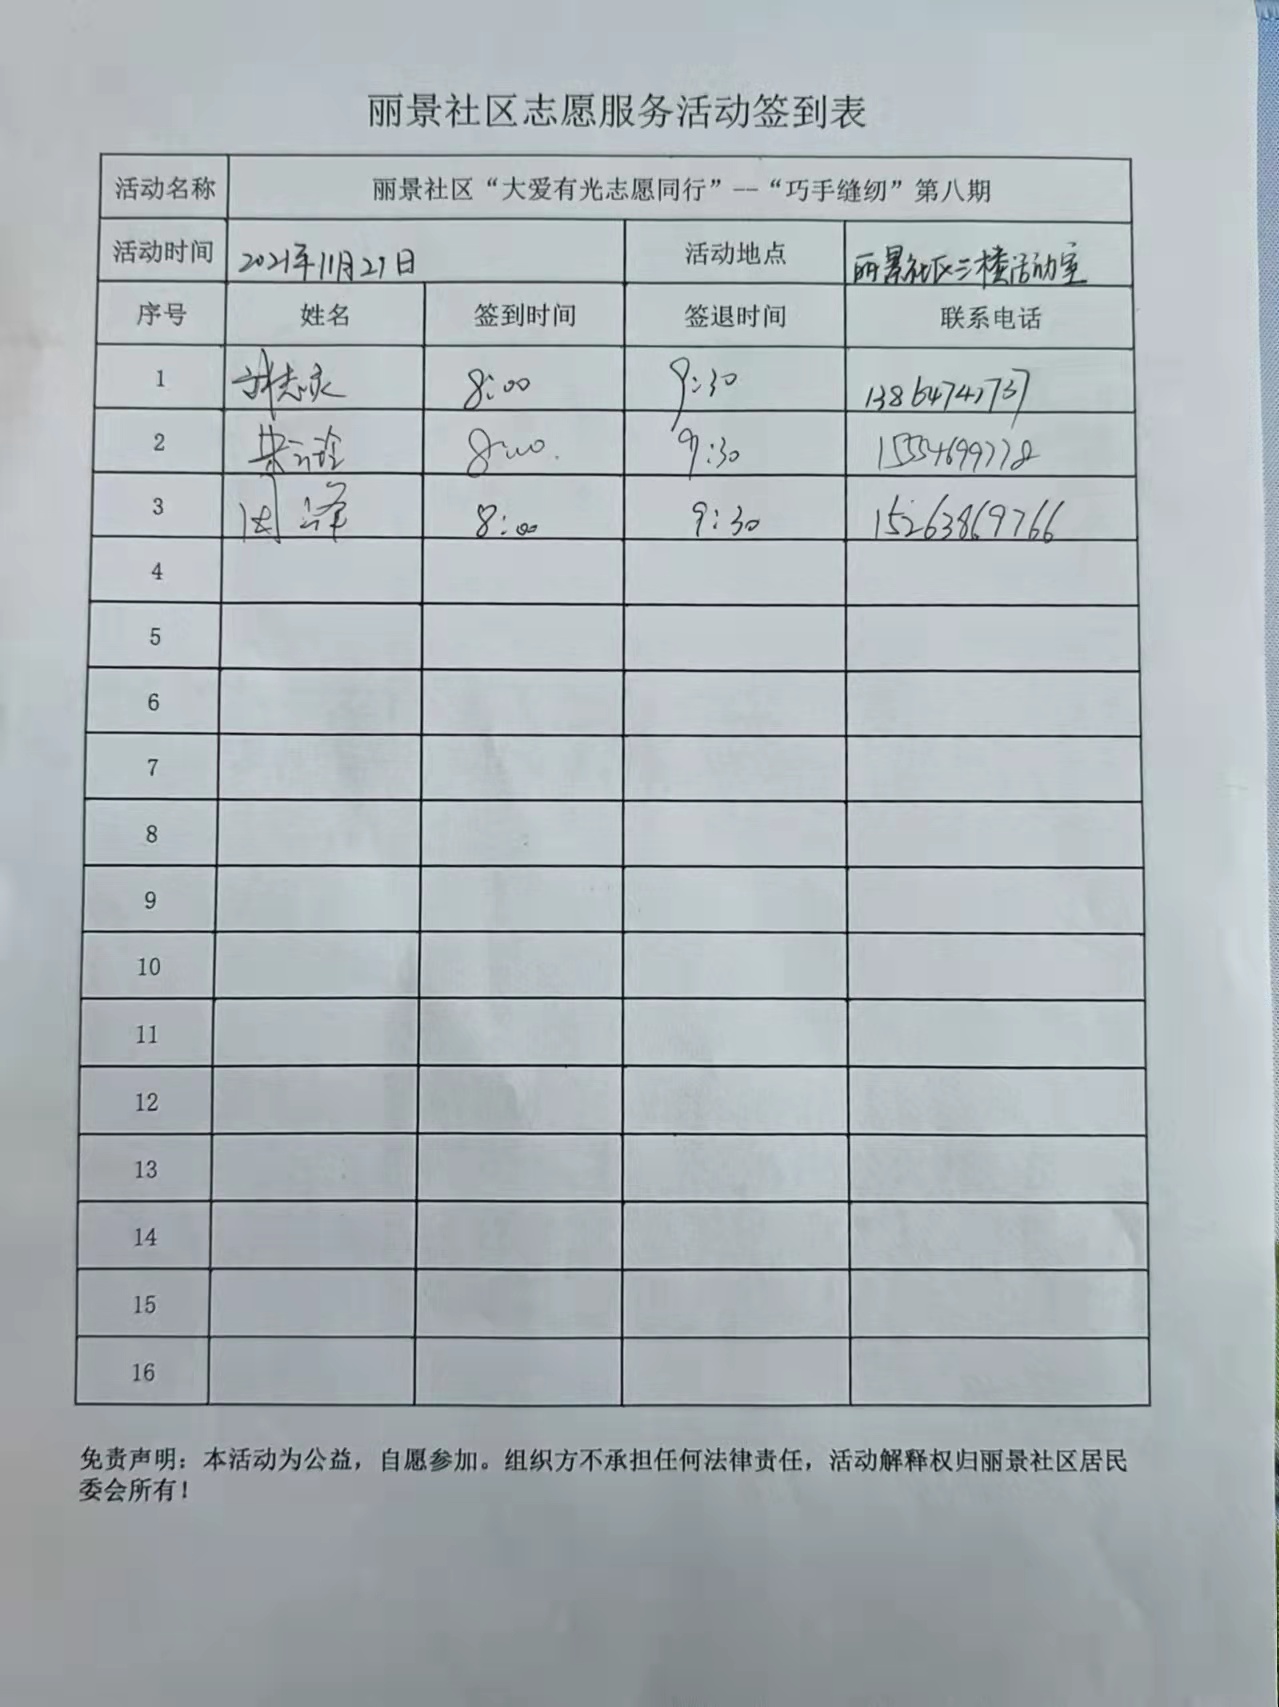 丽景社区志愿服务活动签到表
活动名称 丽景社区“大爱有光志愿同行”--“巧手缝纫”第八期
活动时间 2021年11月27日 活动地点 丽景社区三楼活动室
序号 姓名 签到时间 签退时间 联系电话
1 8:00 9:30
2 8:00 9:30
3 8:00 9:30 15263869766
4
5
6
7
8
9
10
11
12
13
14
15
16
免责声明：本活动为公益，自愿参加。组织方不承担任何法律责任，活动解释权归丽景社区居民
委会所有！